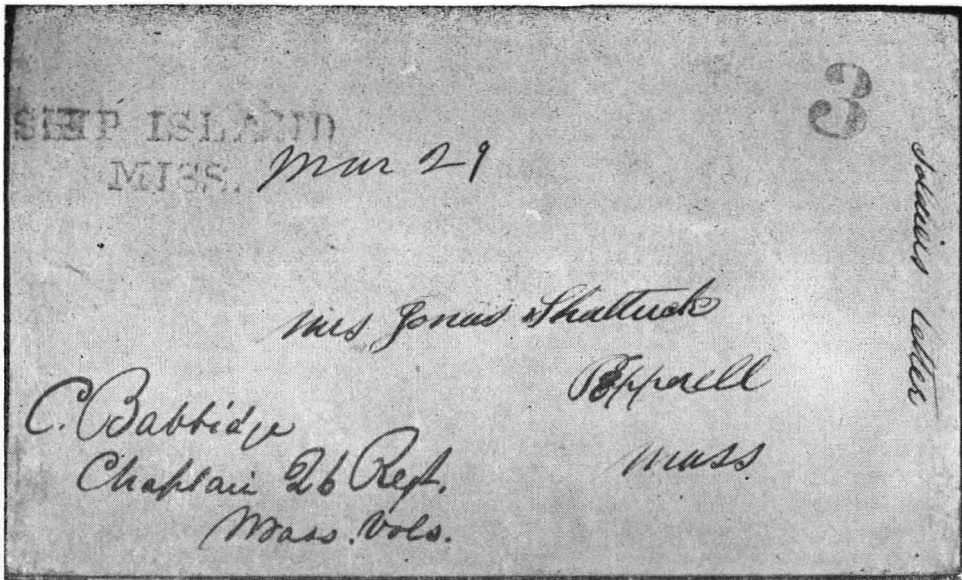 3
SHIP ISLAND
MISS. Mar 29
Soldiers letter
Mrs Jonas Shattuck
Pepperell
Mass
C. Babbidge
Chaplain 26 Regt.
Mass. Vols.